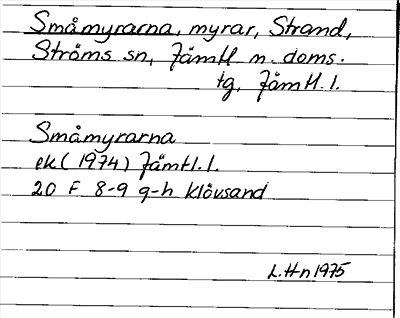 Småmyrarna, myrar, Strand,
Ströms sn, Jämtl n. doms.
tg, Jämtl. l.
Småmyrarna
ek (1974) Jämtl. l.
20 F 8-9 g-h Klövsand
L. Hn 1975